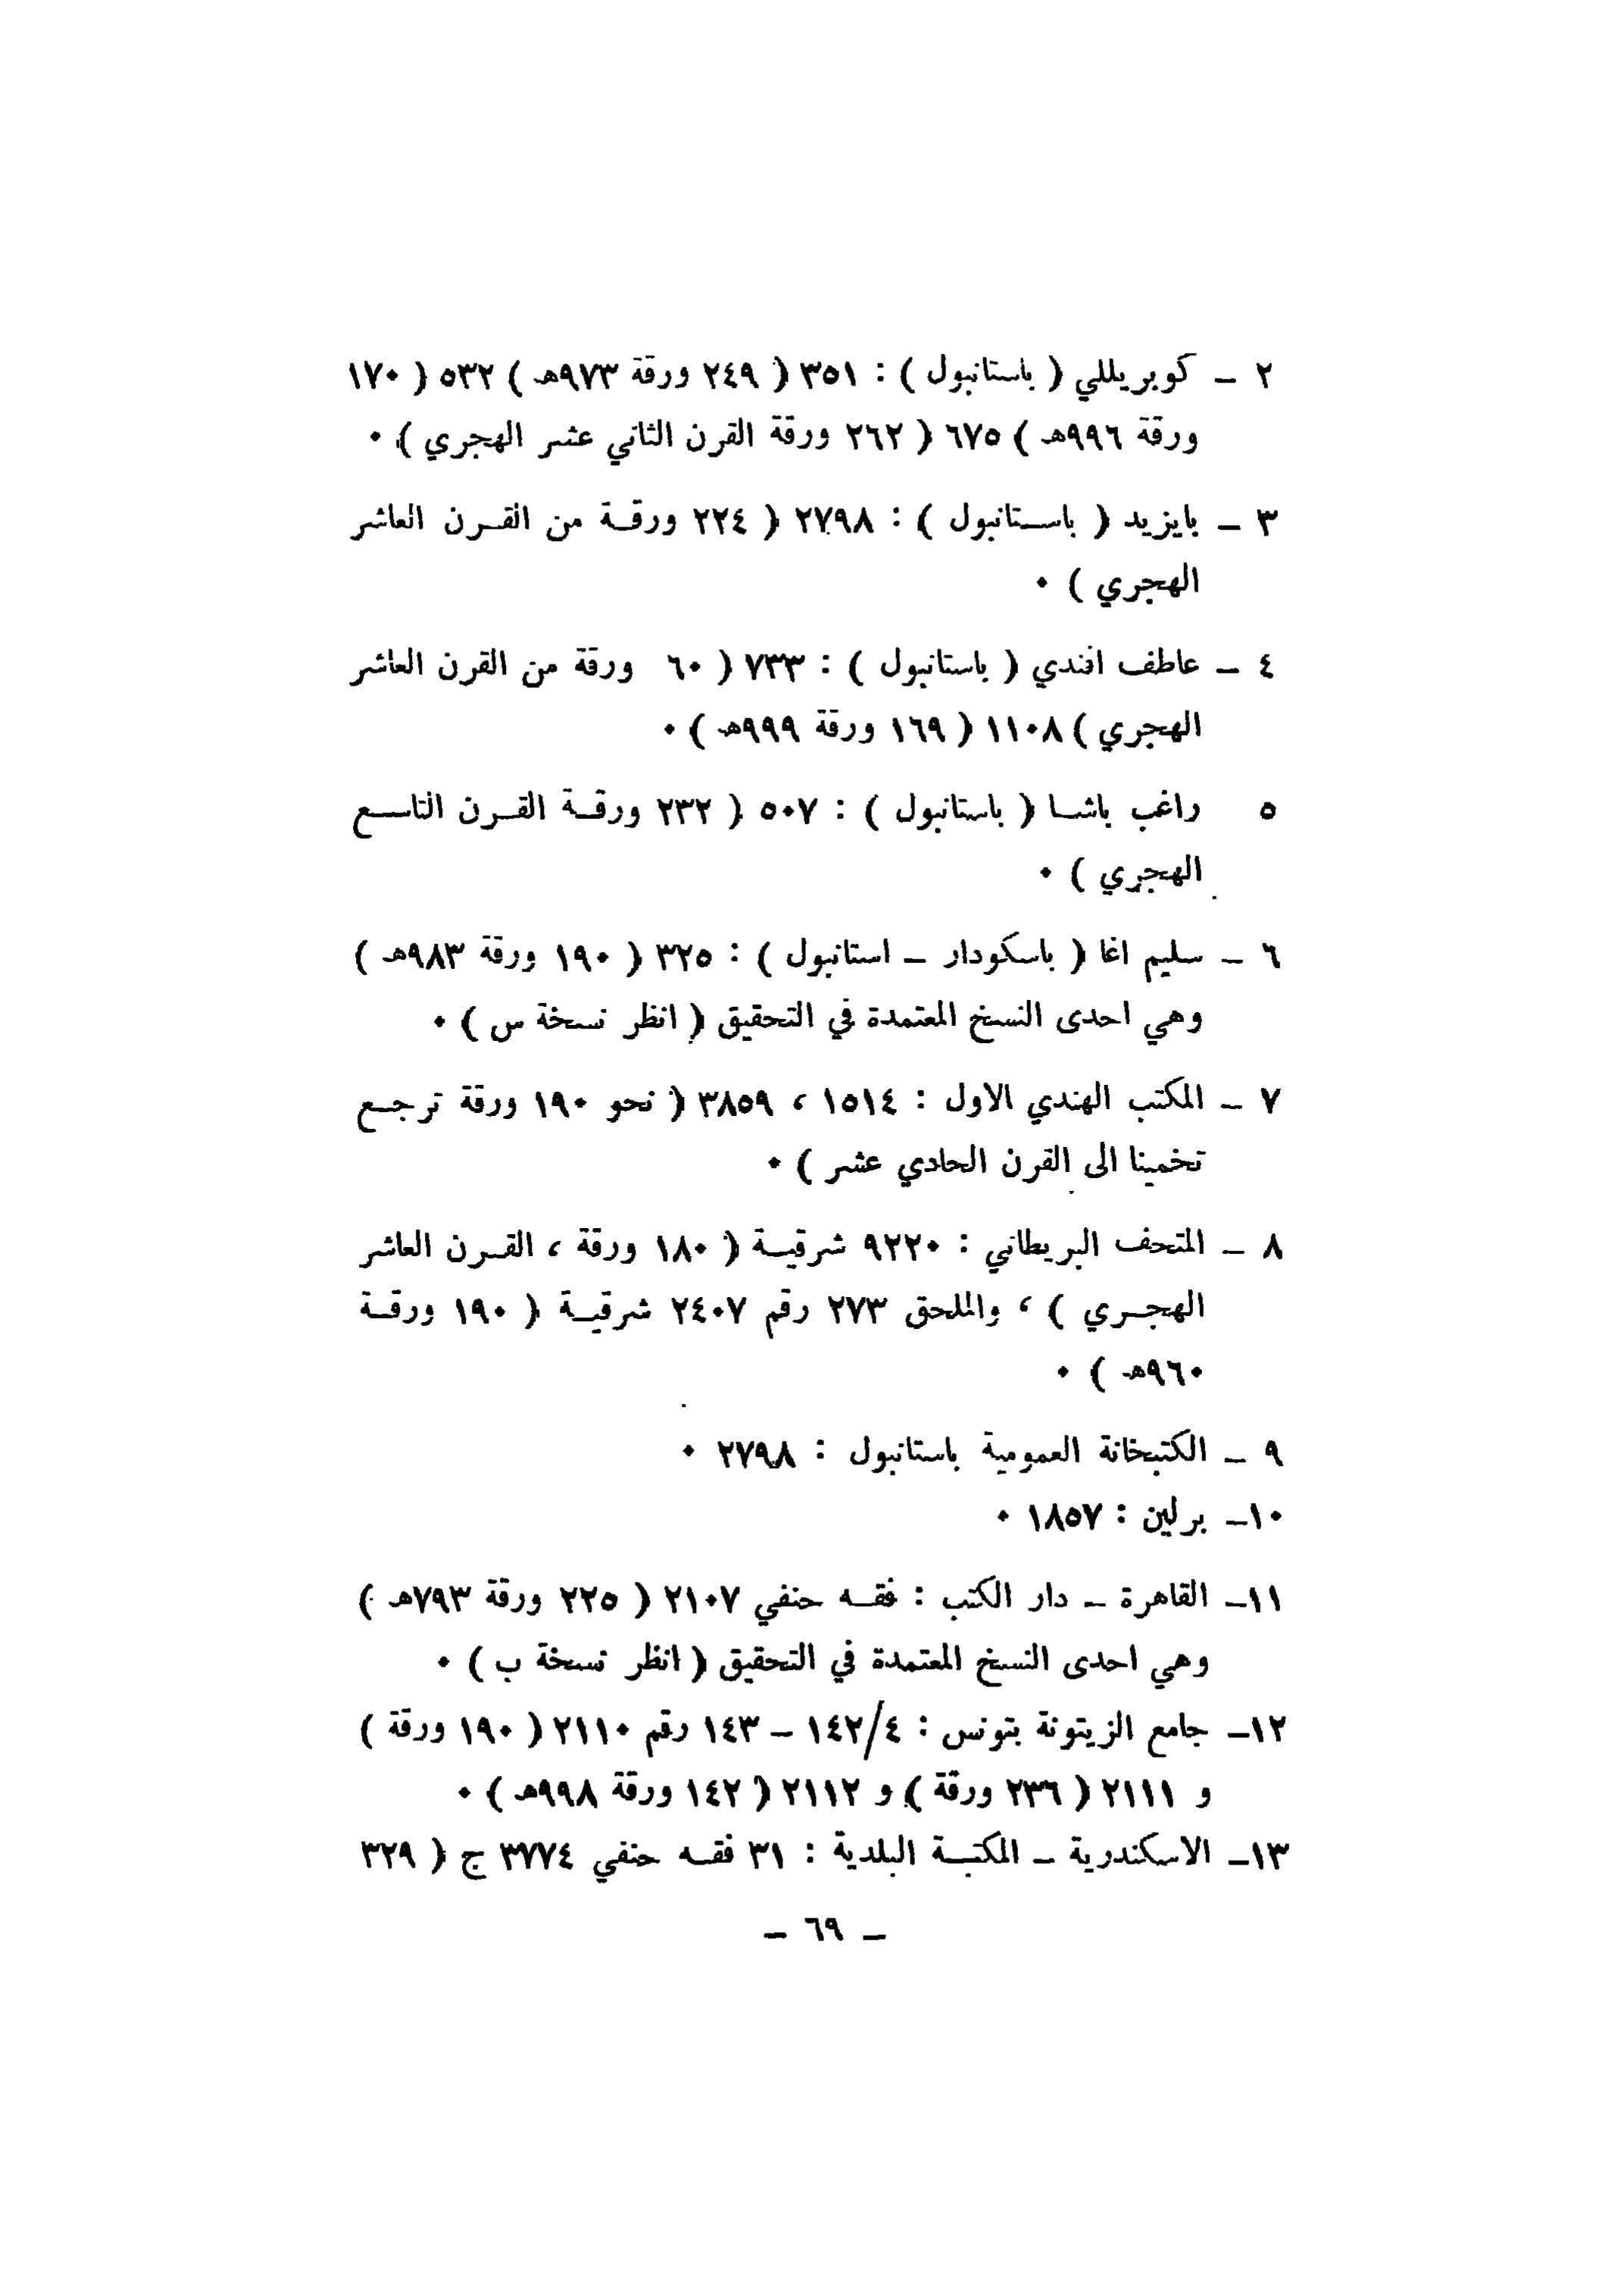 ٢ – كوبريللي ( باستانبول ) : ٣٥١ ( ٢٤٩ ورقة ٩٧٣هـ ) ٥٣٢ ( ١٧٠
ورقة ٩٩٦هـ ) ٦٧٥ ( ٢٦٢ ورقة القرن الثاني عشر الهجري ) ٠
٣ – بايزيد ( باستانبول ) : ٢٧٩٨ ( ٢٢٤ ورقة من القرن العاشر
الهجري ) ٠
٤ – عاطف افندي ( باستانبول ) : ٧٣٣ ( ٦٠ ورقة من القرن العاشر
الهجري ) ١١٠٨ ( ١٦٩ ورقة ٩٩٩هـ ) ٠
٥ راغب باشا ( باستانبول ) : ٥٠٧ ( ٢٣٢ ورقة القرن التاسع
الهجري ) ٠
٦ – سليم اغا ( باسكودار – استانبول ) : ٣٢٥ ( ١٩٠ ورقة ٩٨٣هـ )
وهي احدى النسخ المعتمدة في التحقيق ( انظر نسخة س ) ٠
٧ – المكتب الهندي الاول : ١٥١٤ ، ٣٨٥٩ ( نحو ١٩٠ ورقة ترجع
تخمينا الى القرن الحادي عشر ) ٠
٨ – المتحف البريطاني : ٩٢٢٠ شرقية ( ١٨٠ ورقة ، القرن العاشر
الهجري ) ، والملحق ٢٧٣ رقم ٢٤٠٧ شرقية ( ١٩٠ ورقة
٩٦٠هـ ) ٠
٩ – الكتبخانة العمومية باستانبول : ٢٧٩٨ ٠
١٠– برلين : ١٨٥٧ ٠
١١– القاهرة – دار الكتب : فقه حنفي ٢١٠٧ ( ٢٢٥ ورقة ٧٩٣هـ )
وهي احدى النسخ المعتمدة في التحقيق ( انظر نسخة ب ) ٠
١٢– جامع الزيتونة بتونس : ١٤٢/٤ – ١٤٣ رقم ٢١١٠ ( ١٩٠ ورقة )
و ٢١١١ ( ٢٣٦ ورقة ) و ٢١١٢ ( ١٤٢ ورقة ٩٩٨هـ ) ٠
١٣– الاسكندرية – المكتبة البلدية : ٣١ فقه حنفي ٣٧٧٤ ج ( ٣٢٩
– ٦٩ –